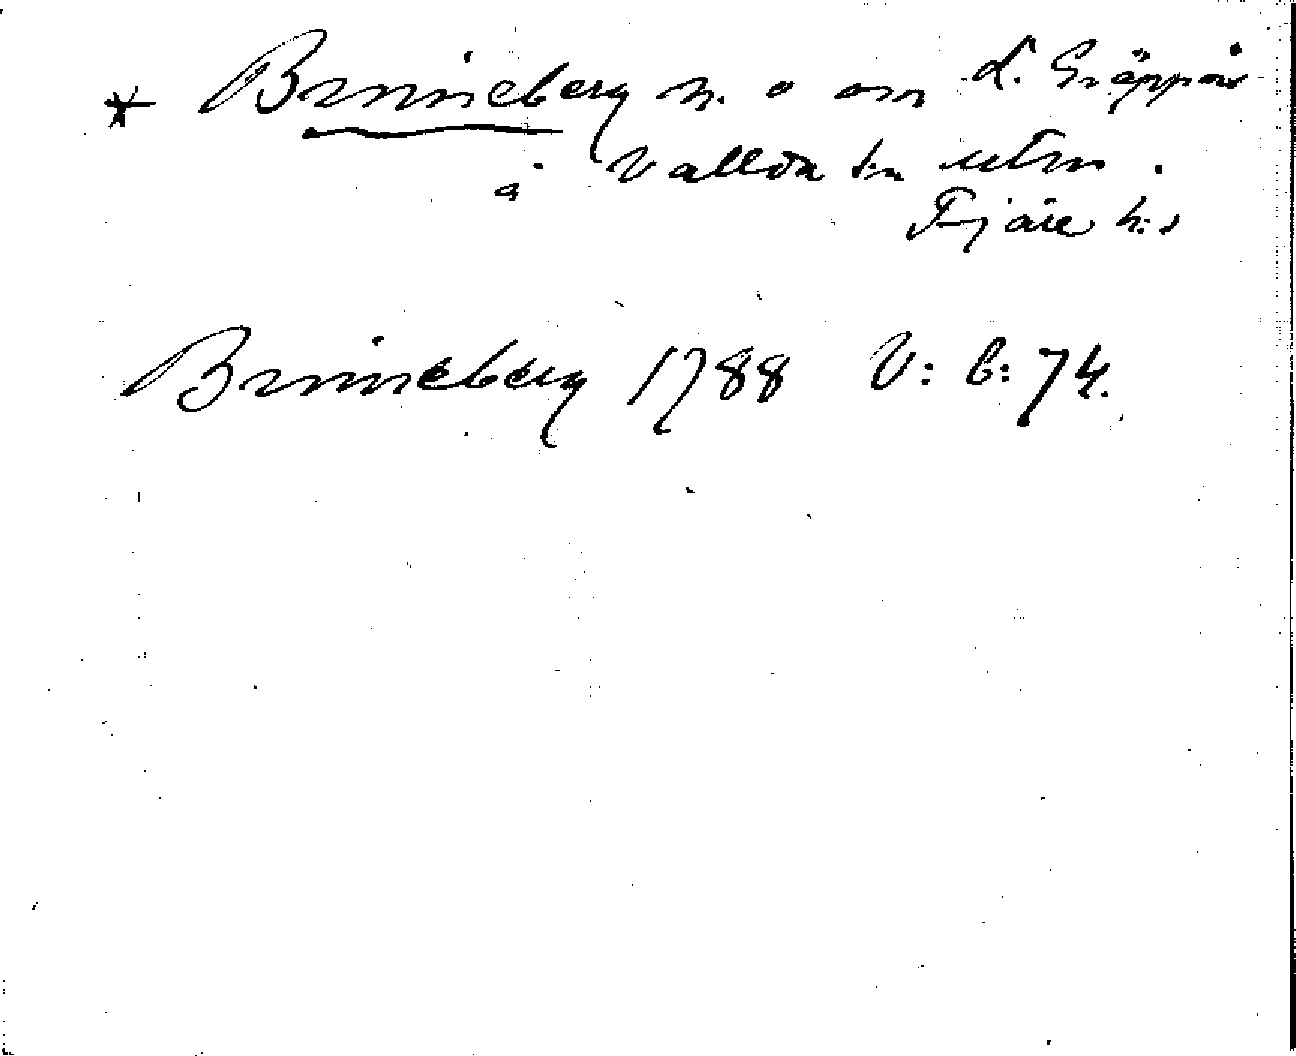 * Brinneberg n. o om L. Gräppås
å Vallda sn utm.
Fjäre h:d
Brinneberg 1788 V: b: 74.